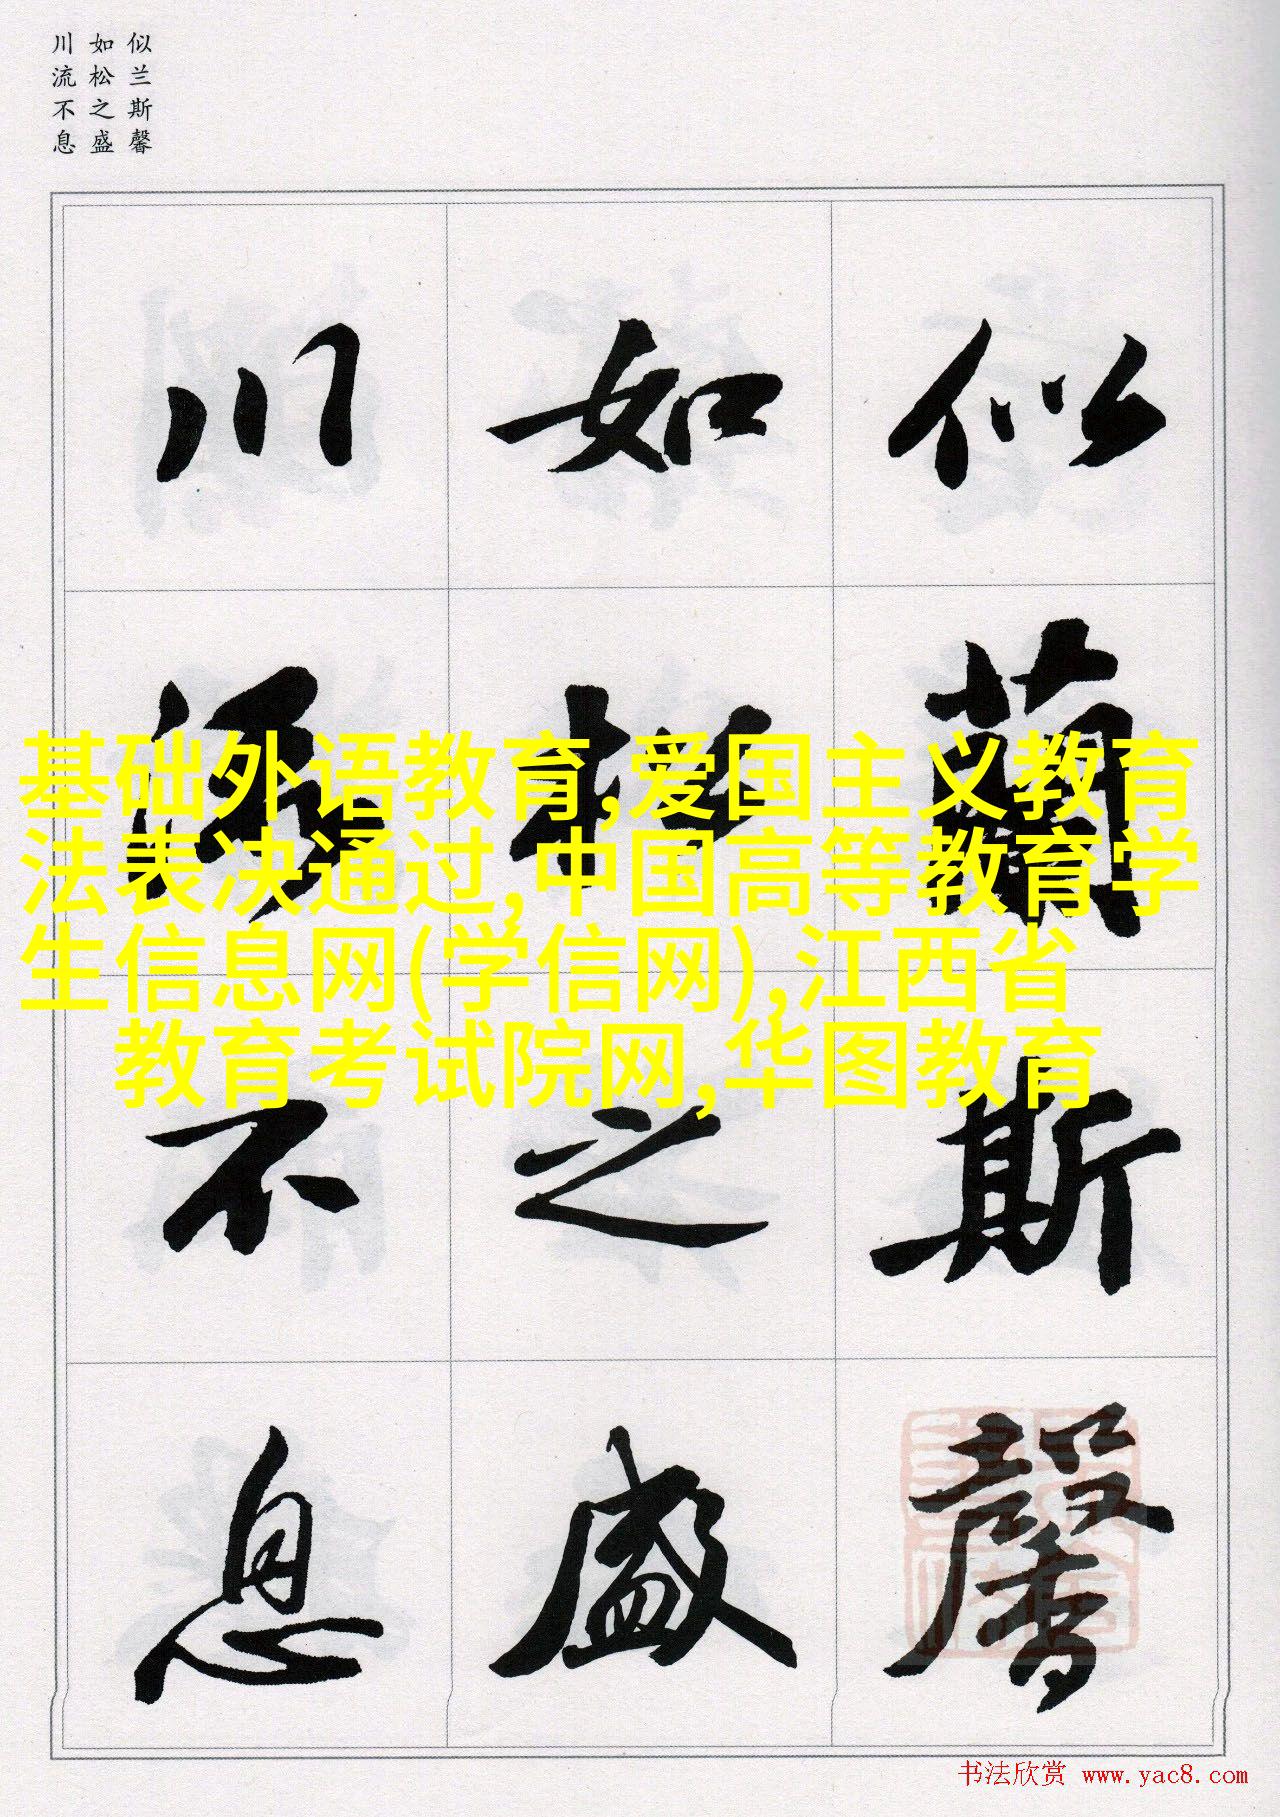 似兰斯馨
如松之盛
川流不息
似蘭斯馨
如松之盛
川流不息
基础外语教育,爱国主义教育
法表决通过,中国高等教育学
生信息网(学信网),江西省
教育考试院网,华图教育
书法欣赏 www.yac8.com